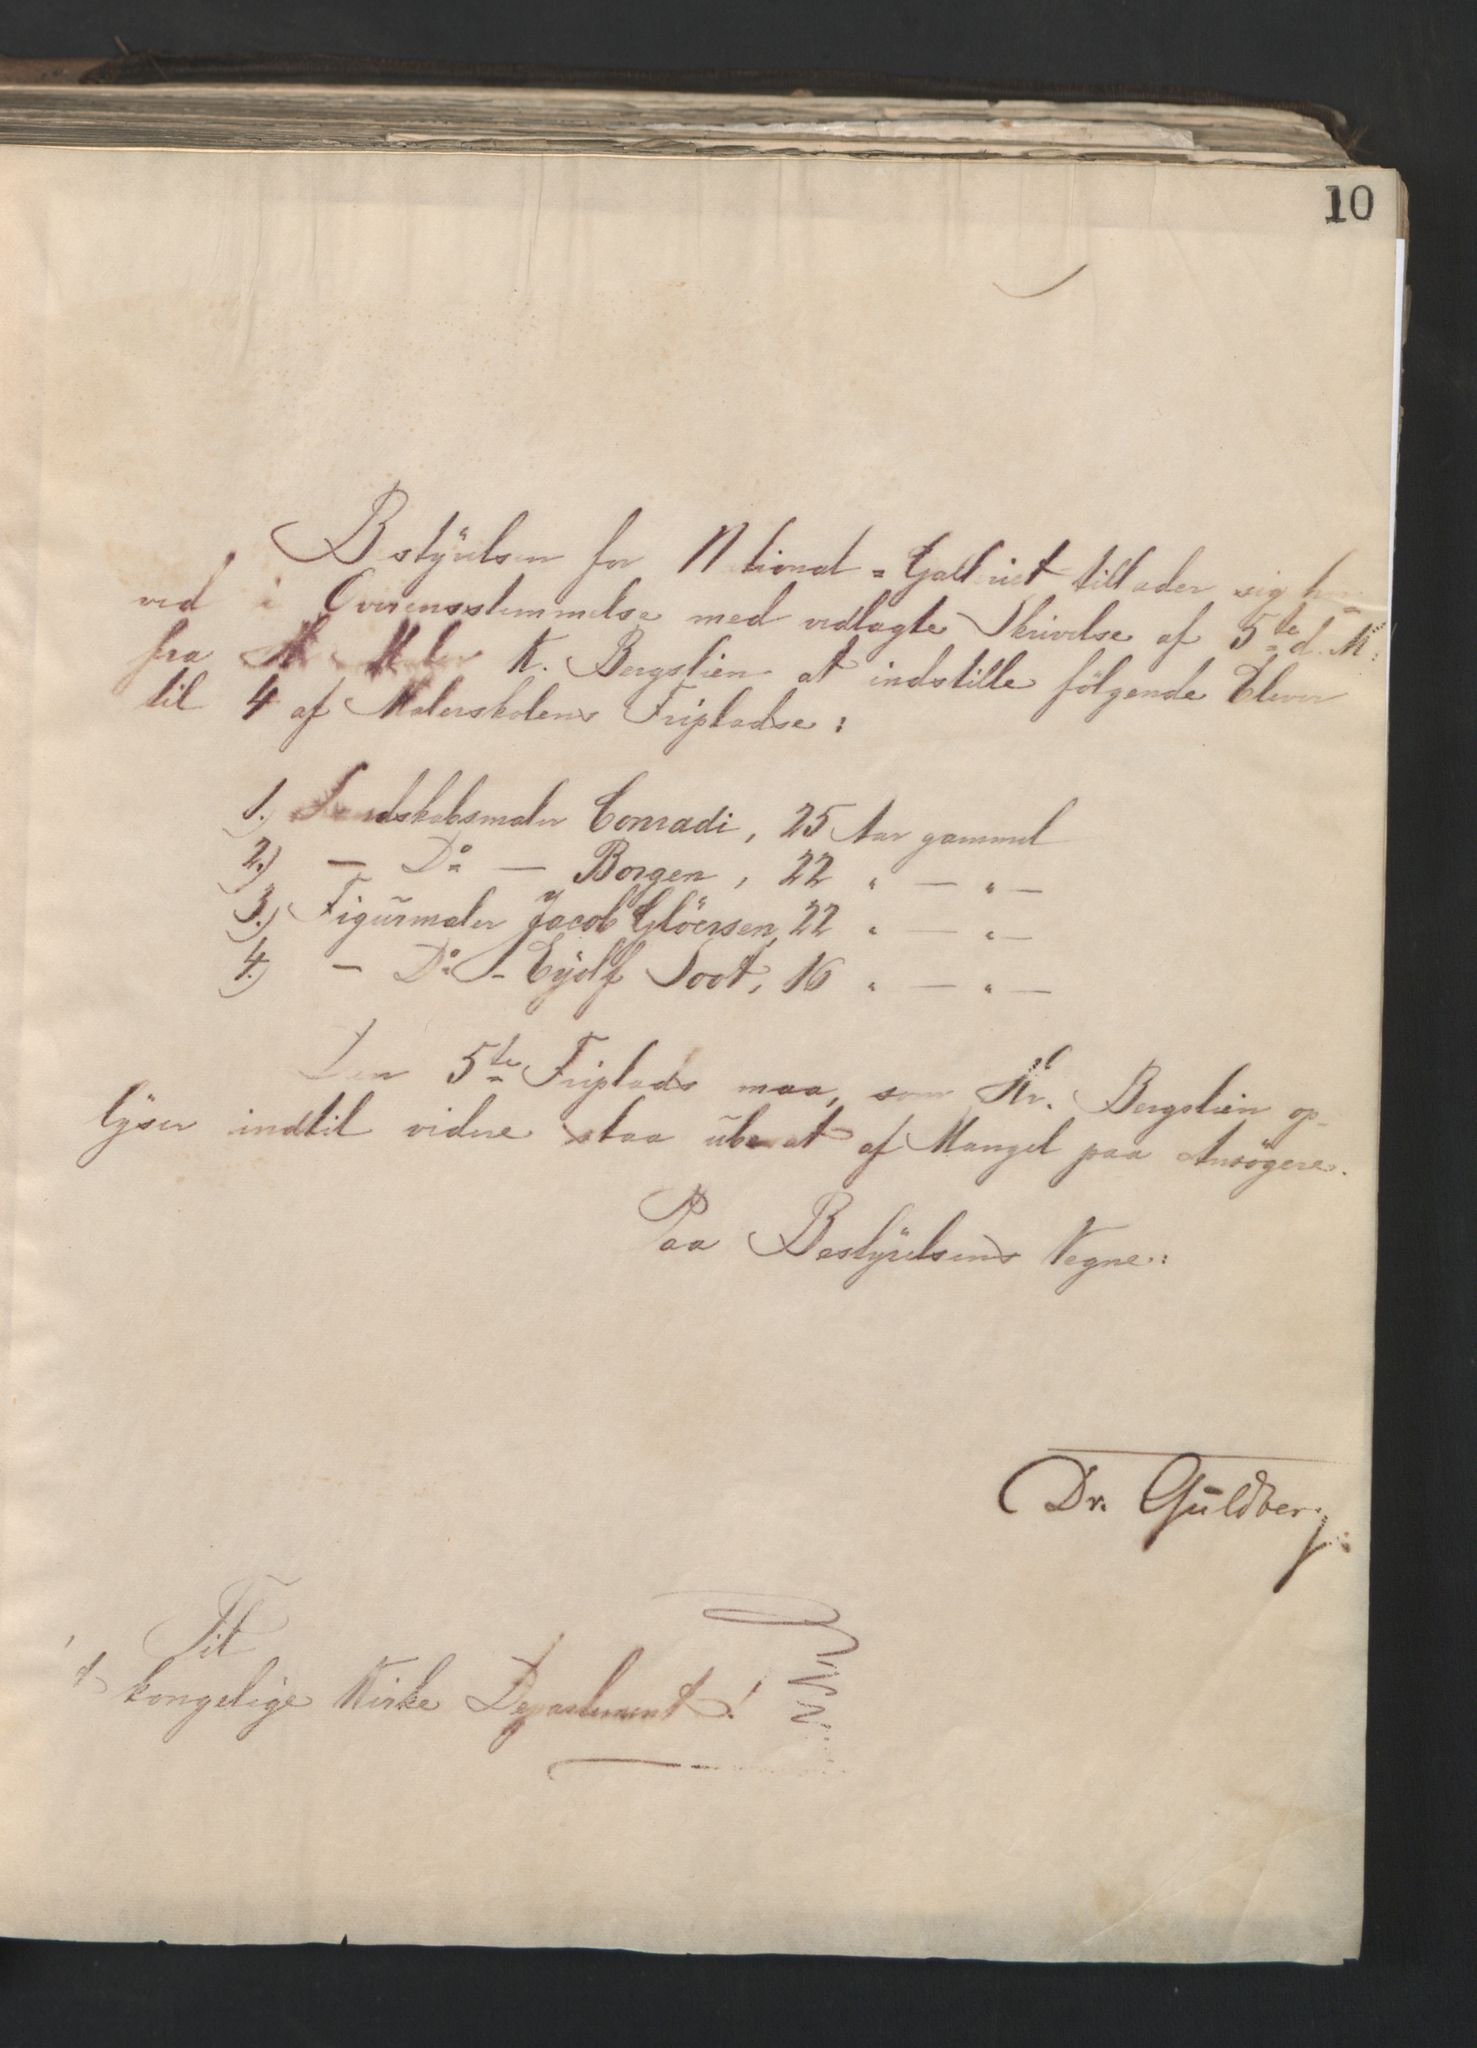 10
Bestÿrelsen for National=Galleriet tillader sig her=
ved i Overensstemmelse med vedlagte Skrivelse af 5te d. M:
fra Hr Maler K. Bergslien at indstille følgende Elever
til 4 af Malerskolens Fripladse:
1.) Landskabsmaler Conradi, 25 Aar gammel
2.) — Do — Borgen, 22 " — " —
3.) Figūrmaler Jacob Glöersen, 22 " — " —
4.) — Do - Eÿolf Soot, 16 " — " —
Den 5te Friplads maa, som Hr. Bergslien op-
lÿser indtil videre staa ūbesat af Mangel paa Ansögere.
Paa Bestÿrelsens Vegne:
Dr. Gūldberg.
Til
kongelige Kirke Departement!